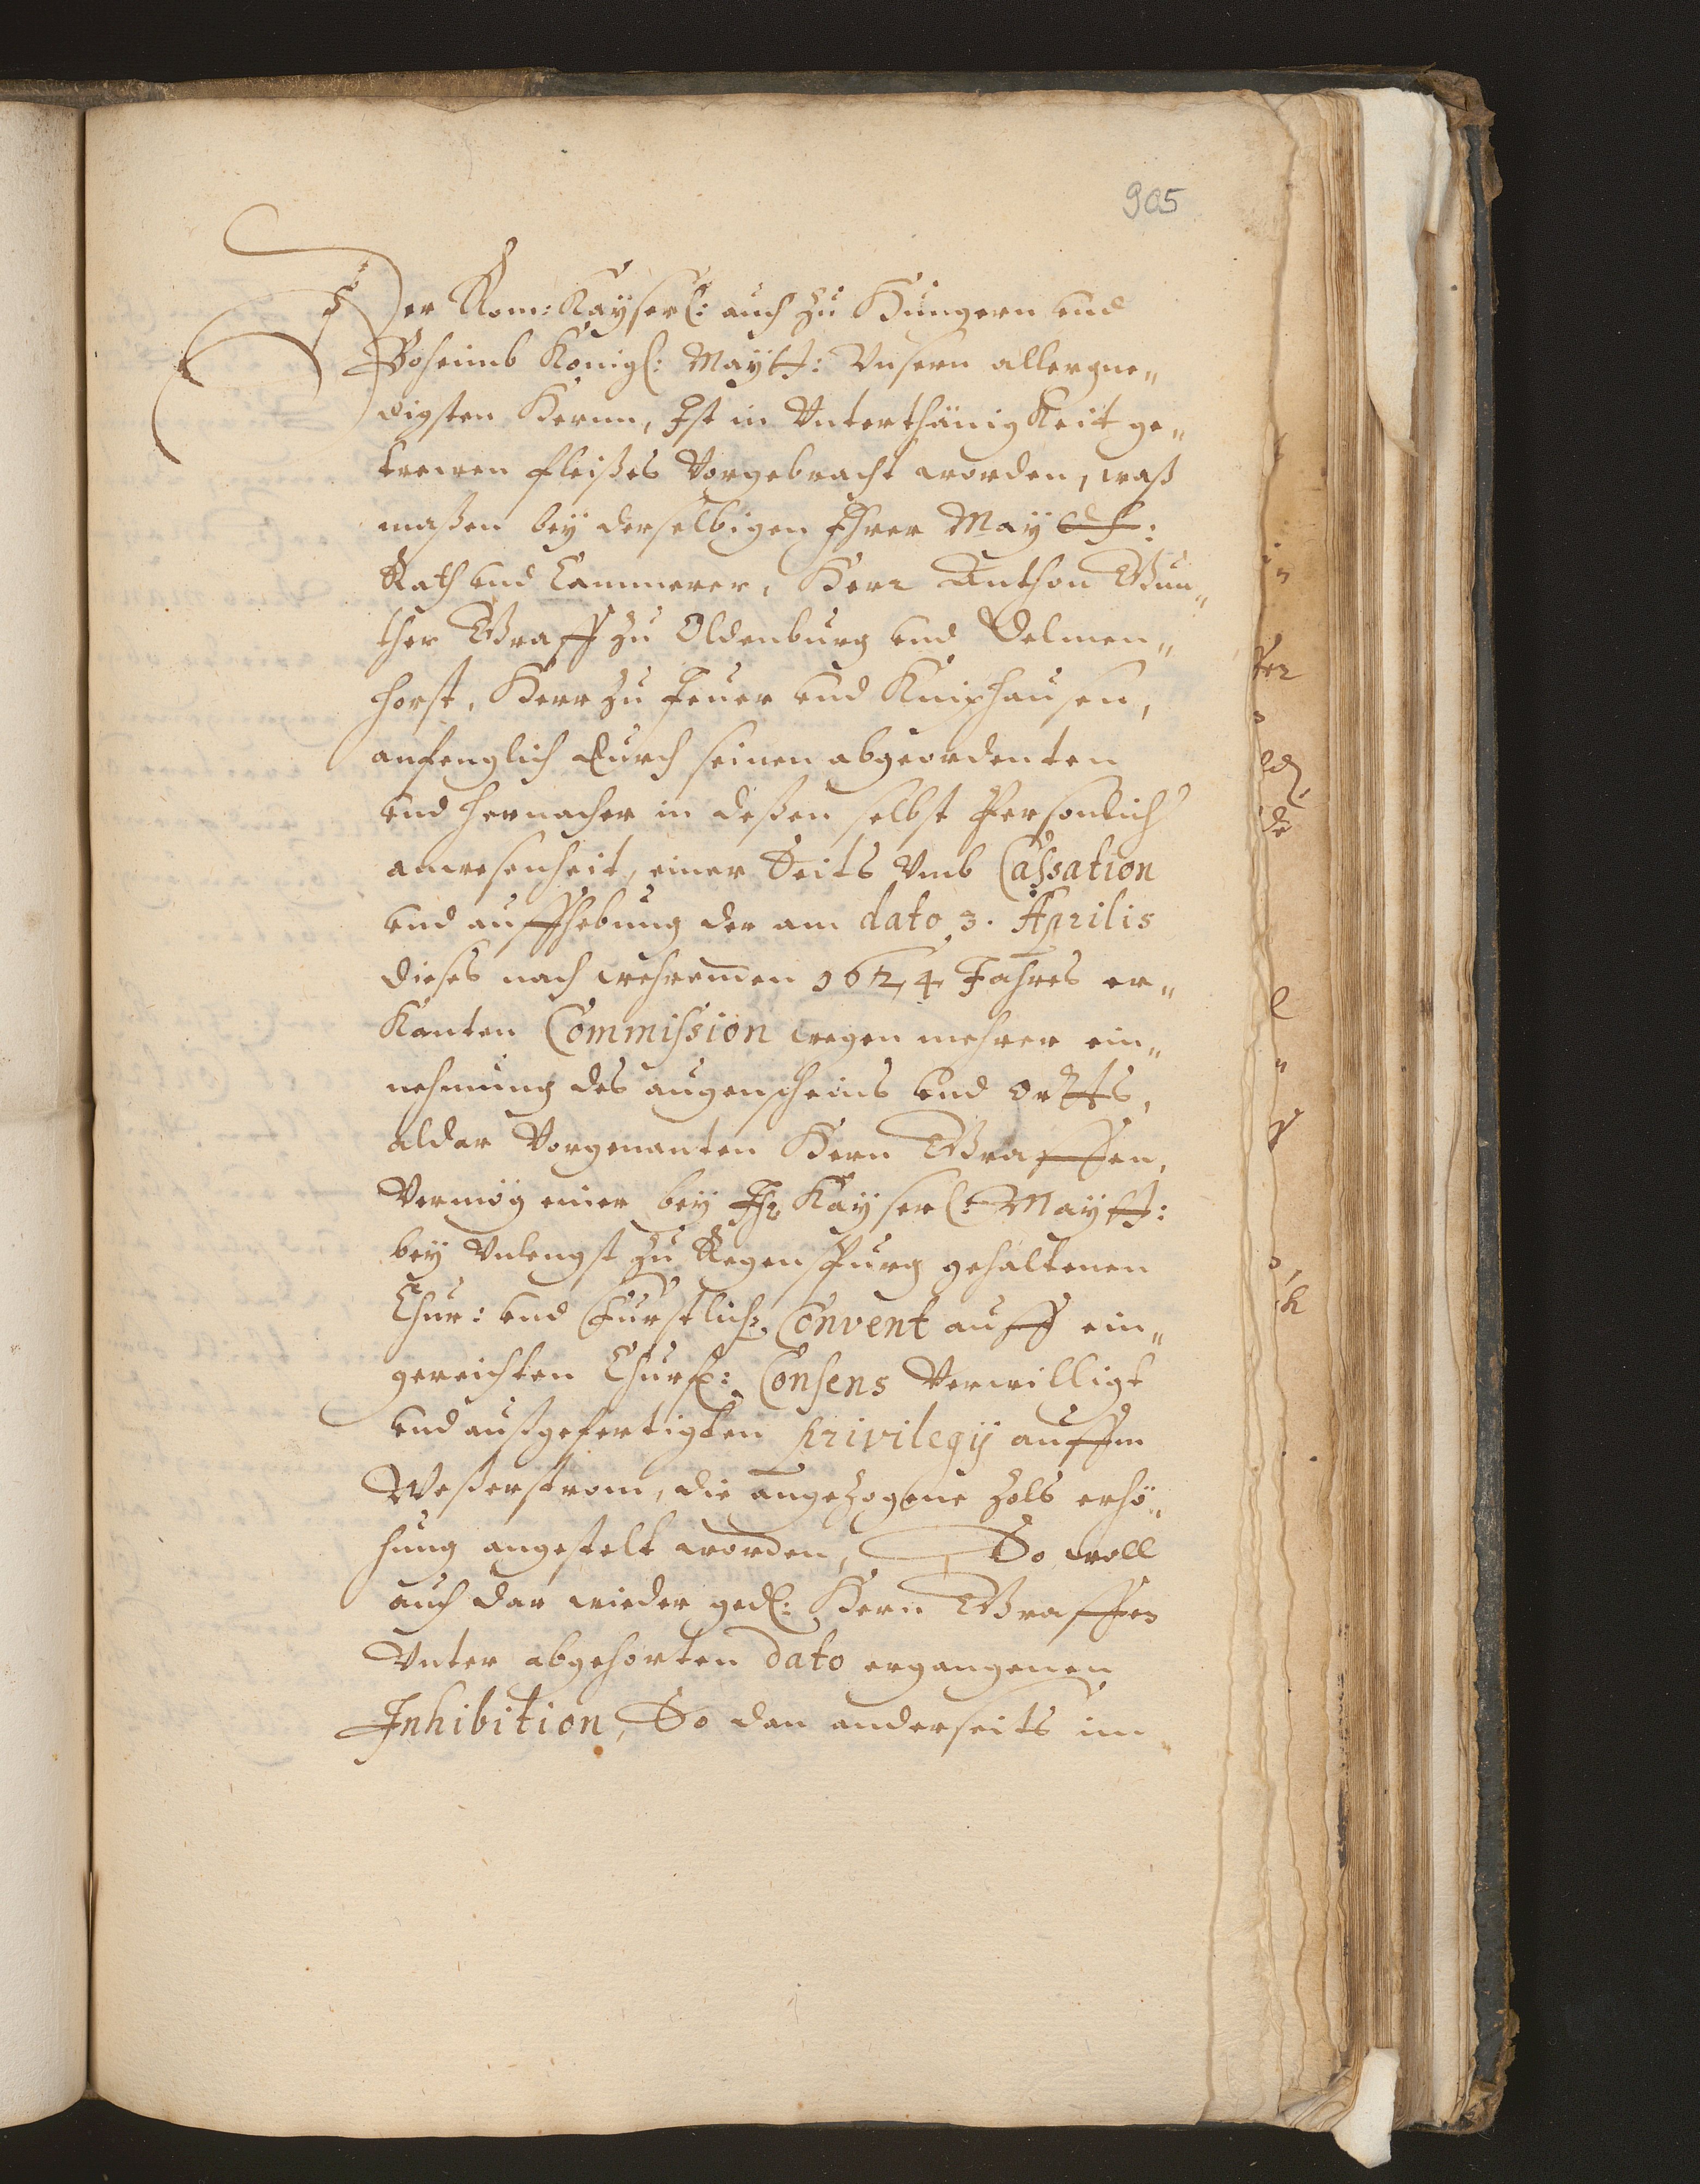 905
Der Rom: Kayserl: auch zu Hungern und
Boheimb Königl: Maytt: Unsern allergne„
digsten Herrn, Ist in Unterthänigkeit ge„
trewen fleißes Vorgebracht worden, waß
maßen bey derselbigen Ihrer May
Rath und Cammerer, Herr Anthon Gun„
ther Graff zu Oldenburg und Delmen„
horst, Herr zu Jever und Kniphausen,
anfenglich durch seinen abgeordenten
und hernacher in deßen selbst Persönlich
anwesenheit, einer Seits Umb Cassation
und auffhebung der am dato 3. Aprilis
dieses nach wehrenden 1624 Jahres er„
Kanten Commission wegen mehrer ein„
nehmung des augenscheins und Ortts,
aldar Vorgenanten Herrn Graffen,
Vermög einer bey Ihr Kayserl: Maytt:
bey Unlengst zu Regenspurg gehaltenen
Chur: und Fürstlich. Convent auff ein„
gereichten Churf: Consens Verwilligt
und außgefertigten privilegij auffm
Weßerstrom, die angezogene Zols erhö„
hung angestelt worden, So woll
auch dar wieder gedl: Herrn Graffen
Unter abgehorten dato ergangenen
Inhibition, So dan anderseits im